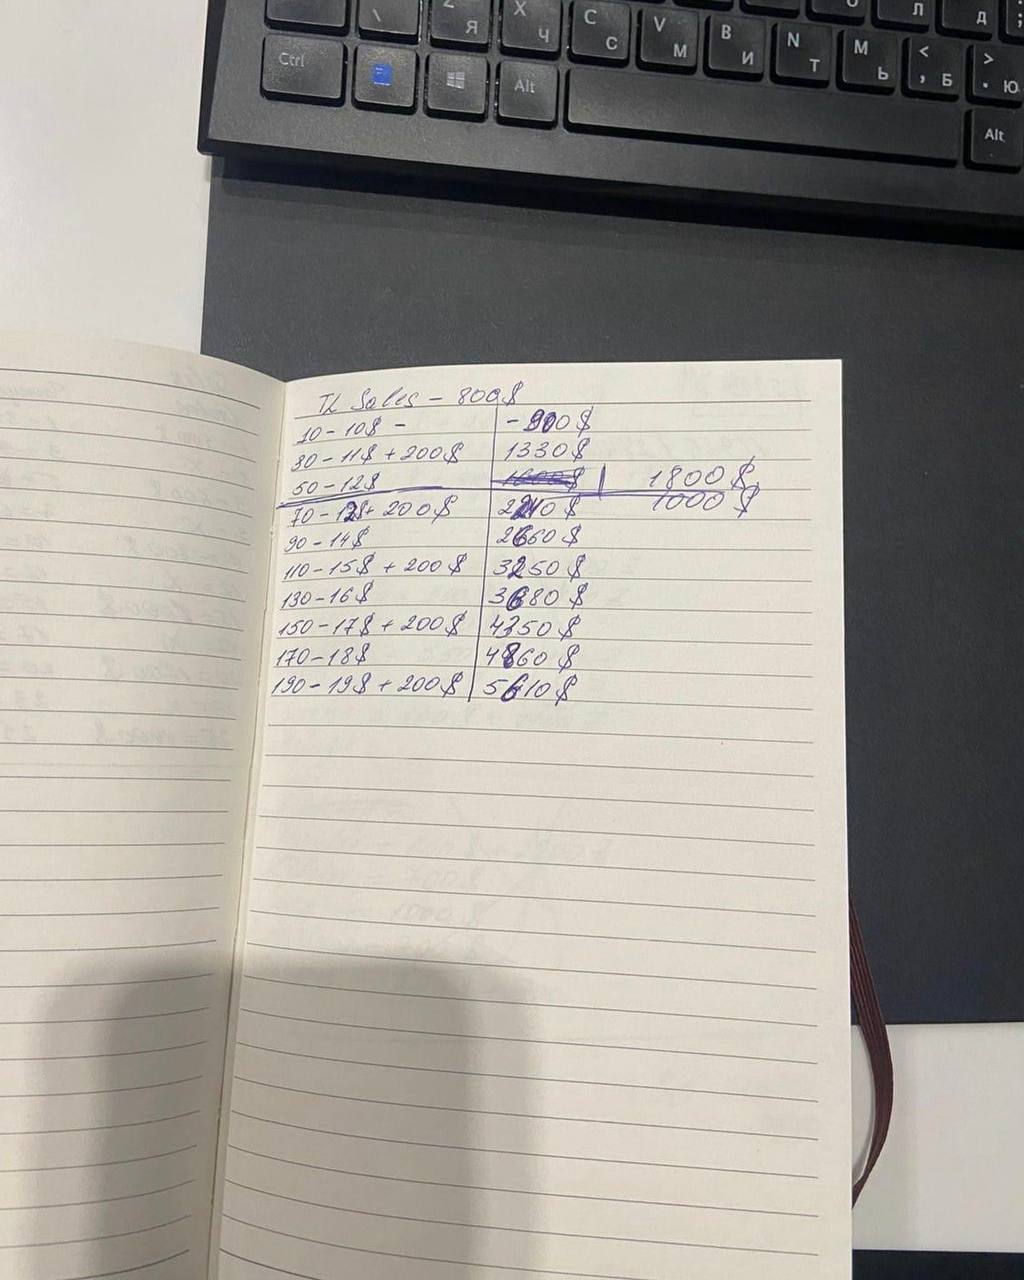 \ Z Я X Ч C С V М B И N Т M Ь < , Б > . Ю Л Д ;
Ctrl Alt Alt
TL Sales - 800$
10 - 10$ - | - 900$
30 - 11$ + 200$ | 1330$
50 - 12$ | 1600$ | 1800$
1000$
70 - 13$ + 200$ | 2210$
90 - 14$ | 2660$
110 - 15$ + 200$ | 3250$
130 - 16$ | 3680$
150 - 17$ + 200$ | 4350$
170 - 18$ | 4860$
190 - 19$ + 200$ | 5610$